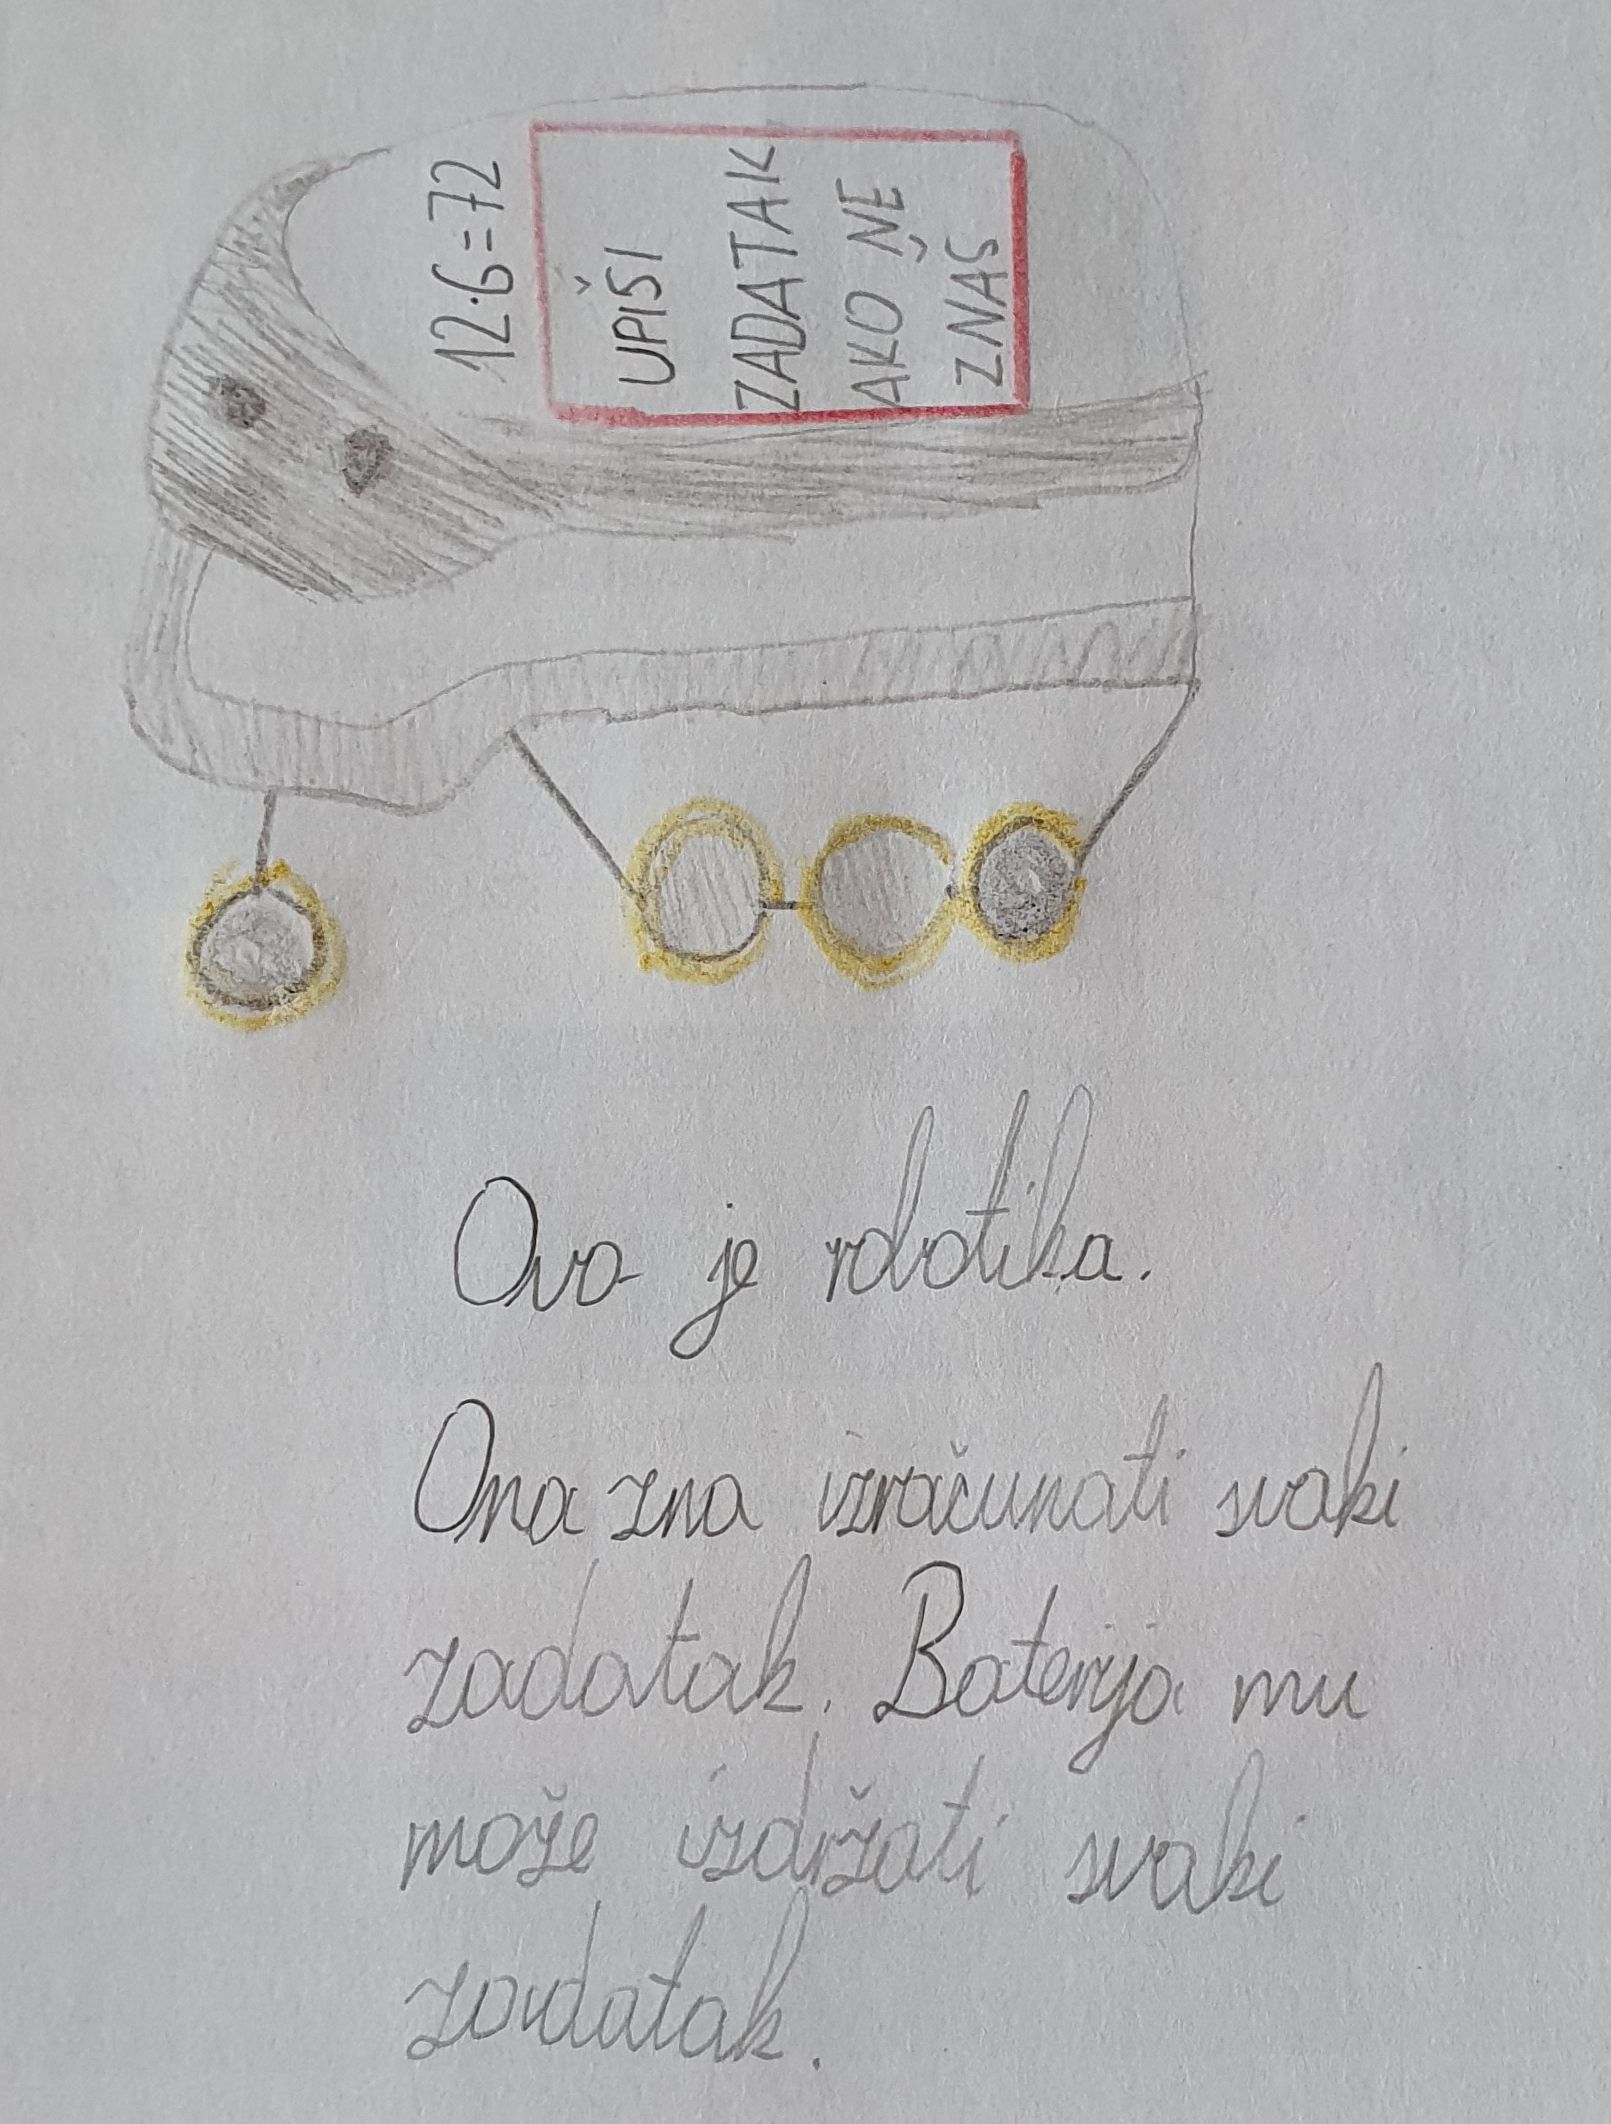 12·6=72
UPIŠI
ZADATAK
AKO NE
ZNAŠ
Ovo je robotika.
Ona zna izračunati svaki
zadatak. Baterija mu
može izdržati svaki
zadatak.